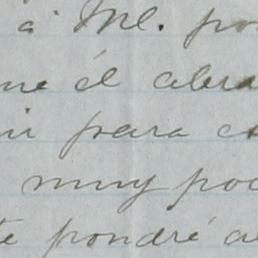 á Ml. po
me él abra
ir para es
muy poc
te pondré a